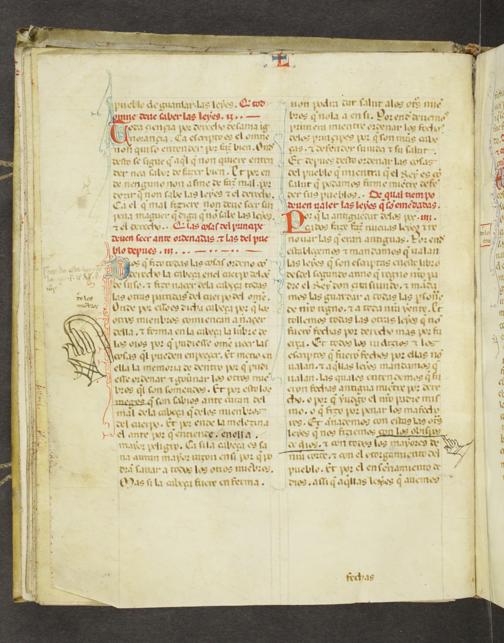 L
pueblo de guardar las leyes. Q̄ tod
omne deue saber las leyes. ii.
Toda siencia por derecho desama ig
norancia. Ca escripto es el omne
non quiso entender por faz bien. Ond
desto se sigue q̄ aql̄ q̄ non quiere enten
der non sabe de fazer bien. Et por en
de ninguno non asme de faz mal. por
dezir q̄ non sabe las leyes & el derecho.
Ca el q̄ mal fiziere non deue seer sin
pena maguer q̄ diga q̄ no sabe las leyes
& el derecho. Q̄ las cosas del principe
deuen seer ante ordenadas q̄ las del pue
blo depues. iii.
Dios q̄ fizo todas las cosas ordeno cō
derecho la cabeça en el cuerpo del oē
de suso. & fizo nacer della cabeça todas
las otras partidas del cuerpo del omē.
Onde por esso es dicha cabeça por q̄ los
otros miembros comiençan a naçer
della. & formo en la cabeça la lūbre de
los oios por q̄ pudiesse omē ueer las
cosas ql̄ pueden enpeçer. Et metio en
ella la memoria de dentro por q̄ pudi
esse ordenar & gouinar los otros mie
bros ql̄ son sometidos. Et por esto los
meges q̄ son sabios ante curan del
mal dela cabeça q̄ delos mienbros
del cuerpo. Et por ende la melezina
el ante por q̄ entiende. en ella.
mayor peligro. Ca si la cabeça es sa
na aurā mayor uitoria en si por q̄ po
drā sanar a todos los otros miebros.
Mas si la cabeça fuere enferma.
non podra dar salut a los otrs mie
bros q̄ nola a en si. Por ende deuemos
primera miente ordenar los fechos
delos principes por q̄ son nrās cabe
ças. & defender su uida & su salut.
Et depues desto ordenar las cosas
del pueblo en mientra q̄ el Rey es cō
salut q̄ podamos firme miētre defē
der sus pueblos. De qual tiempo
deuen ualer las leyes q̄ son emendadas.
Por q̄ la antiguedat delos pec iiii.
cados faze faz nueuas leyes & re
nouar las q̄ eran antiguas. Por ende
establecemos & mandamos q̄ ualan
las leyes q̄ son escriptas en este libro
desdel segundo anno q̄ regno mio pa
dre el Rey don
mos las guardar a todas las psonas
de mio regno. & a toda mia yente. Et
tollemos todas las otras leyes q̄ no
fuerō fechas por derecho mas por fu
erça. Et todos los iudizios & los
escriptos q̄ fuerō fechos por ellas nō
ualan. & aq̄llas leyes mandamos q̄
ualan. las quales entendemos q̄ fu
eron fechas antigua miētre por dere
cho. o por q̄ iudgo el mio padre mis
mo. o q̄ fizo por penar los malfecho
res. Et annademos con estas las otrs
leyes q̄ nos fiziemos con los obispos
& con todos los mayores de
mi corte. & con el otorgamiento del
pueblo. Et por el ensenamiento de
dios. assi q̄ aq̄llas leyes q̄ auemos
fechas